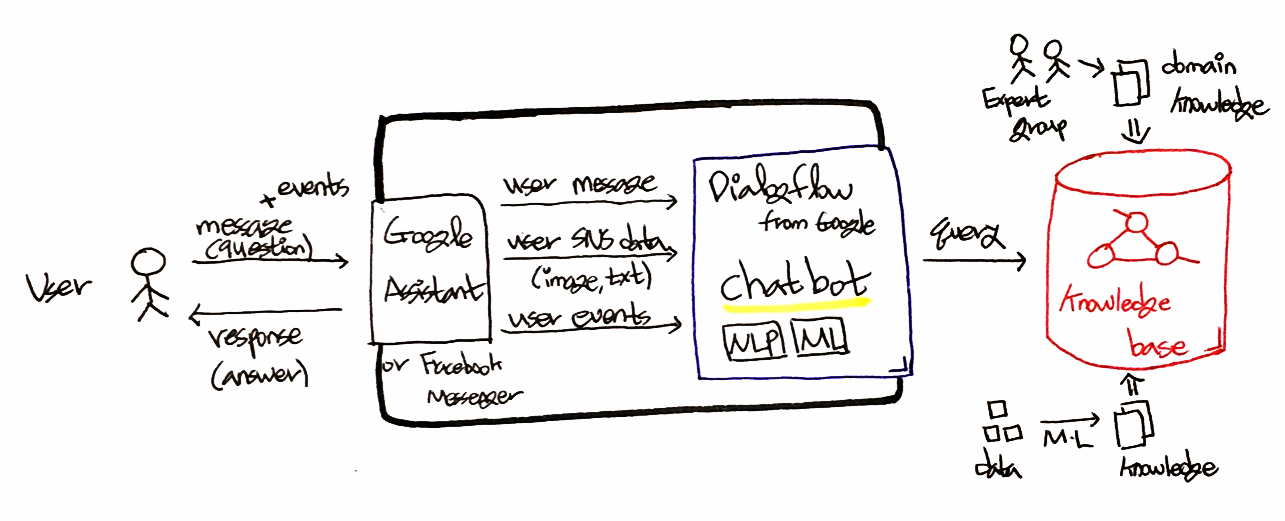 User
+ events
message
(question)
response
(answer)
Google
Assistant
or Facebook
Messenger
user message
user SNS data
(image, txt)
user events
Dialogflow
from Google
chatbot
NLP
ML
query
Expert
group
domain
knowledge
knowledge
base
data
M.L
knowledge